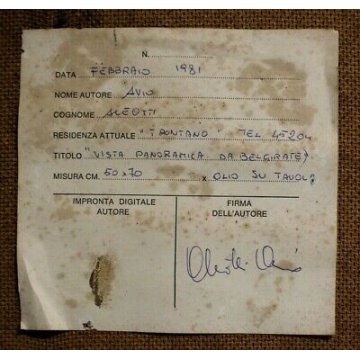 N.
DATA FEBBRAIO 1981
NOME AUTORE AVIO
COGNOME ALEOTTI
RESIDENZA ATTUALE "TRONTANO" TEL 45204
TITOLO "VISTA PANORAMICA DA BELGIRATE"
MISURA CM. 50x70 x OLIO SU TAVOLA
IMPRONTA DIGITALE AUTORE
FIRMA DELL'AUTORE